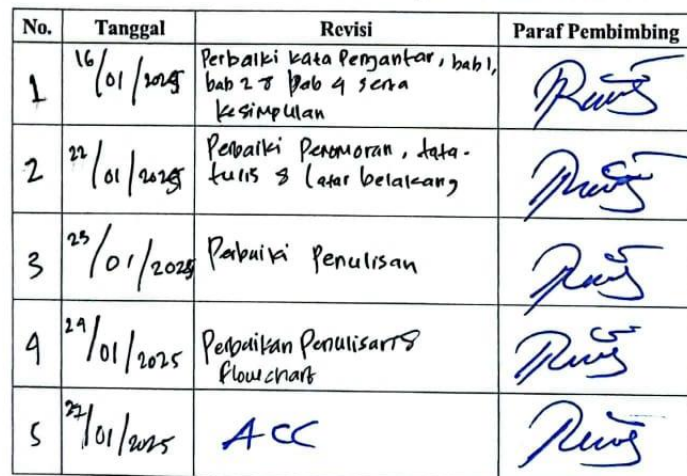 No. Tanggal Revisi Paraf Pembimbing
1 16/01/2025 Perbaiki kata Pengantar, bab 1,
bab 2 & bab 4 serta
kesimpulan
2 22/01/2025 Perbaiki Penomoran, tata-
tulis & latar belakang
3 /01/2025 Perbaiki Penulisan
4 /01/2025 Perbaikan Penulisan &
flowchart
5 27/01/2025 ACC